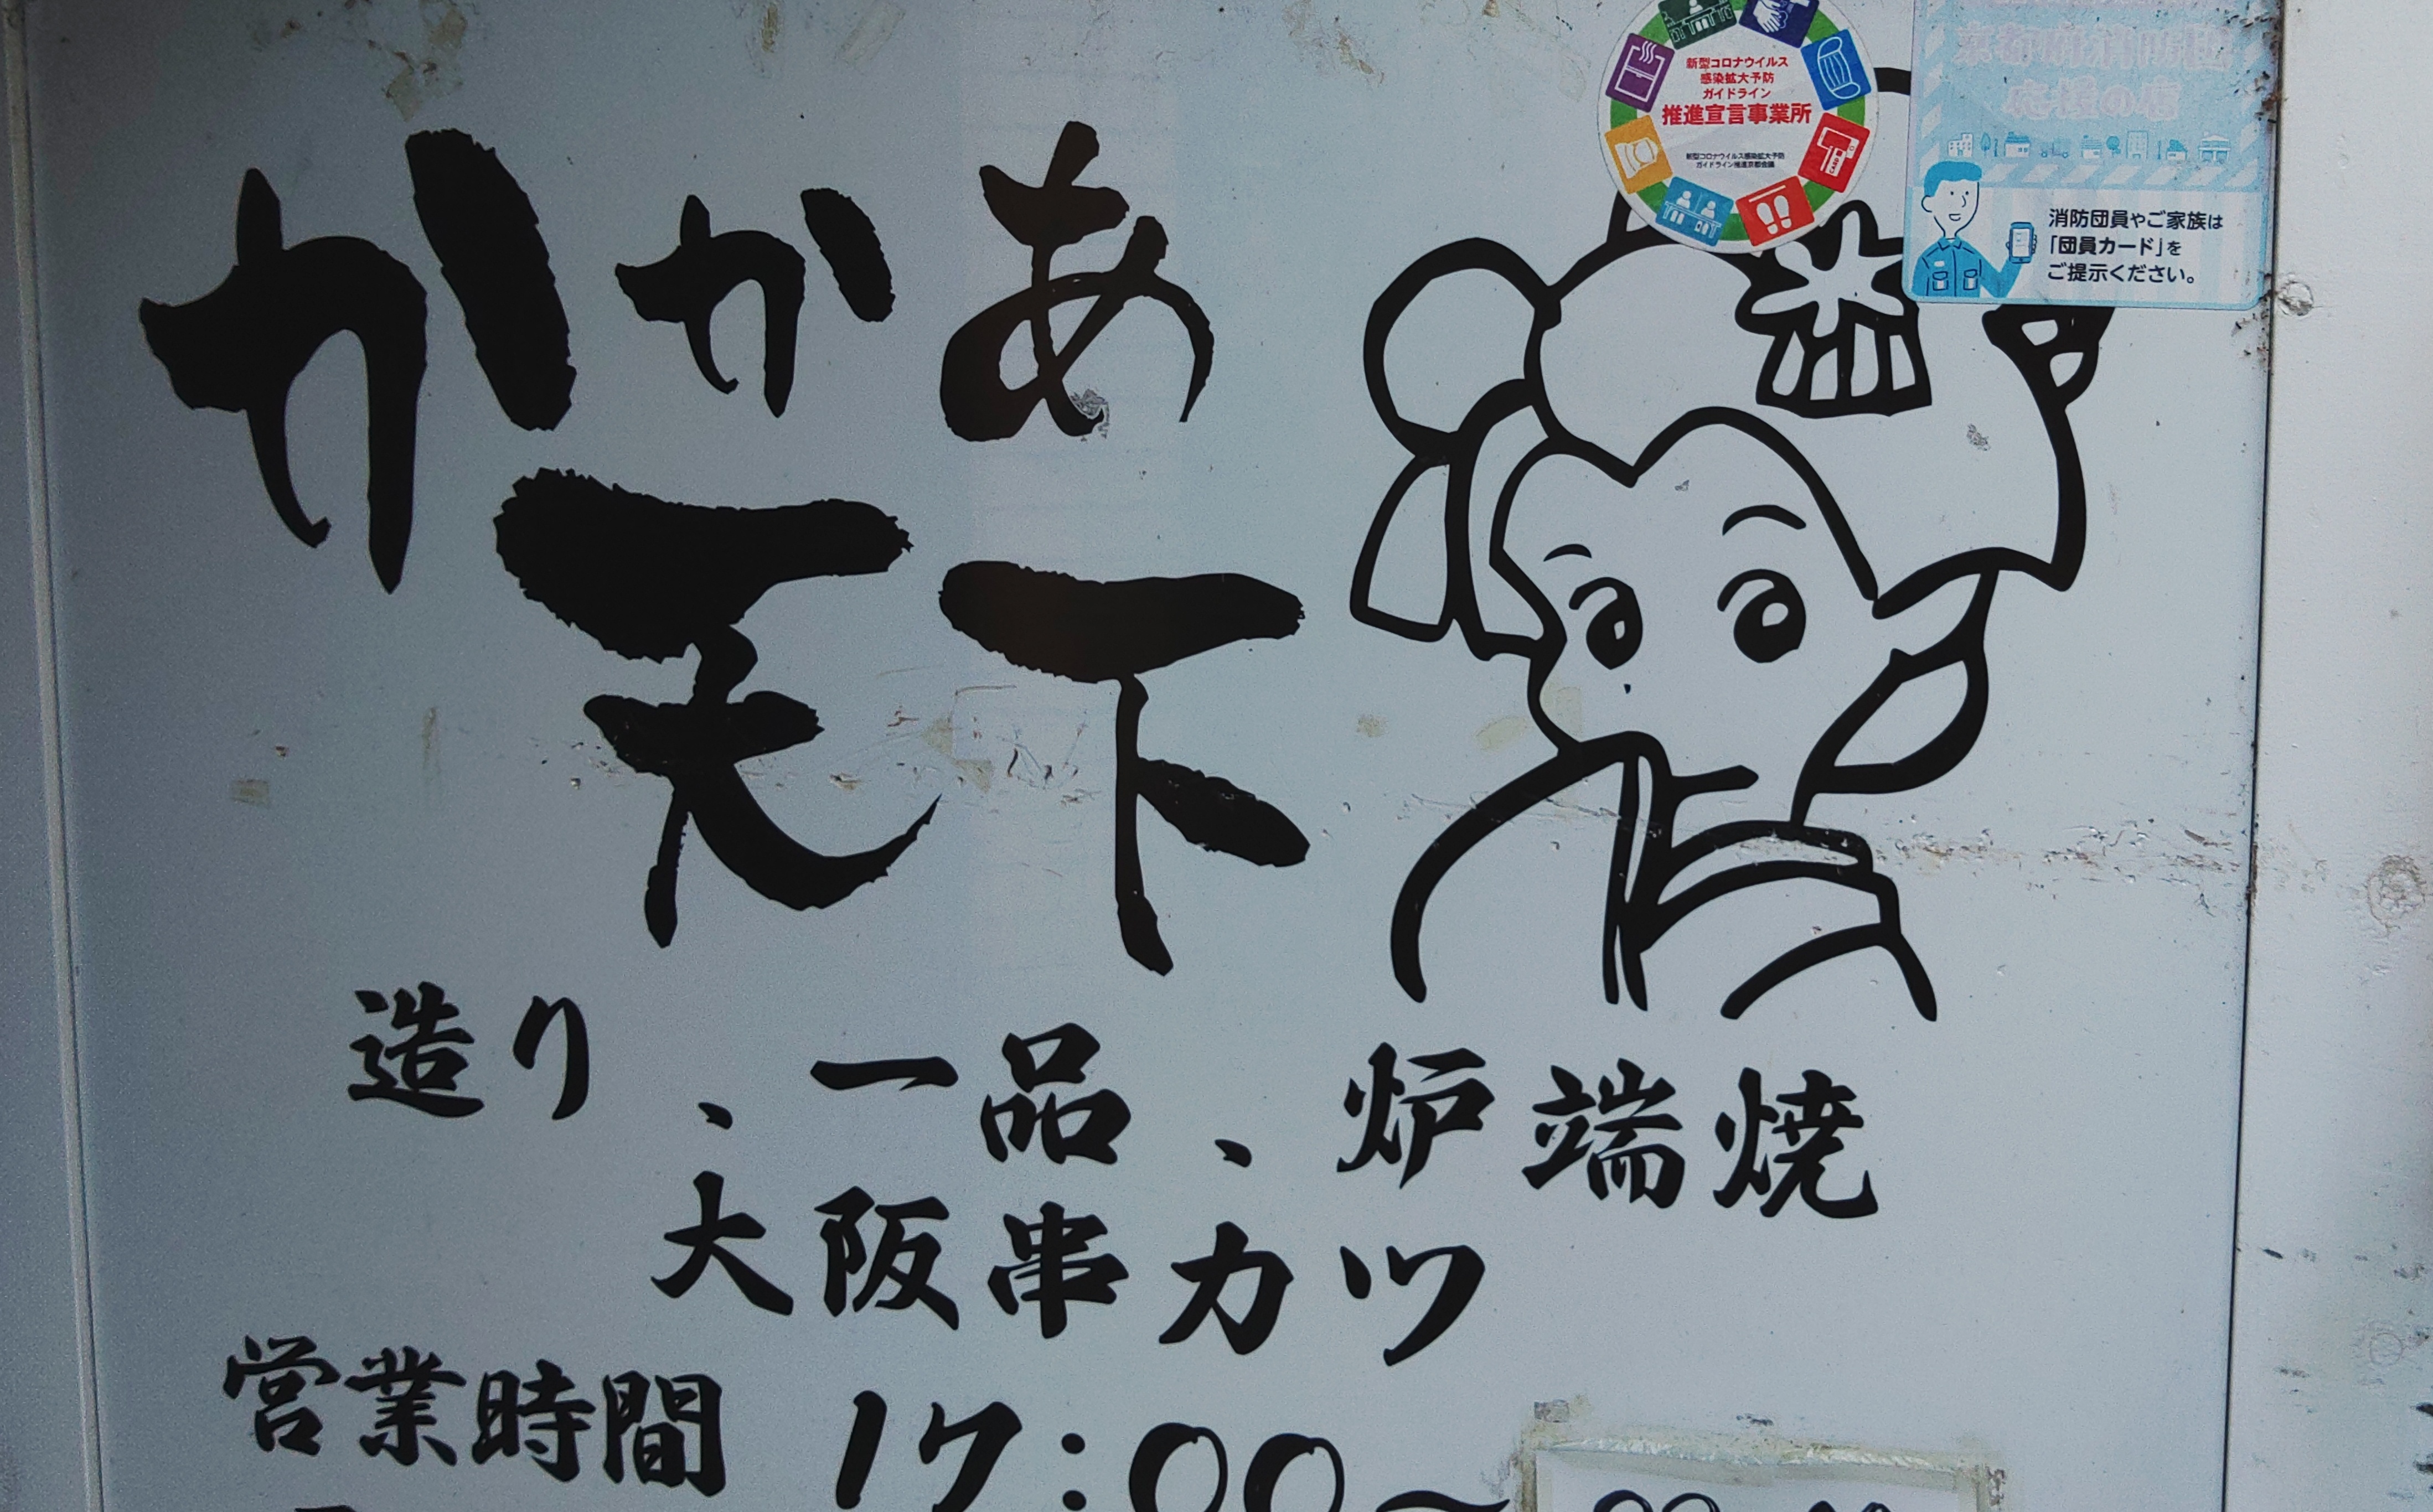 かかあ
天下
造り、一品、炉端焼
大阪串カツ
営業時間 17:00〜
新型コロナウイルス
感染拡大予防
ガイドライン
推進宣言事業所
新型コロナウイルス感染拡大予防
ガイドライン推進京都会議
京都府消防団
応援の店
消防団員やご家族は
「団員カード」を
ご提示ください。